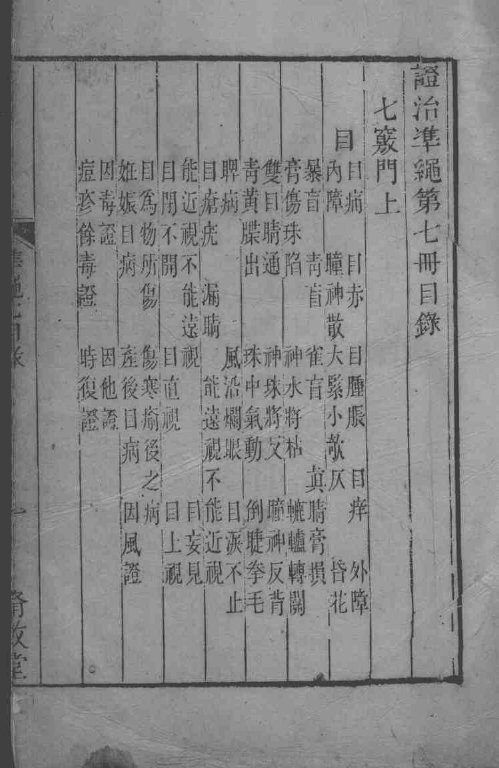 證治準繩第七冊目錄
七竅門上
目
目病 目赤 目腫脹 目痒 外障
內障 瞳神散大 緊小 欹仄 昏花
暴盲 青盲 雀盲 真睛膏損
膏傷珠陷 神水將枯 轆轤轉關
雙目睛通 神珠將反 瞳神反背
青黃牒出 珠中氣動 倒睫拳毛
睥病 風沿爛眼 目淚不止
目瘡疣 漏睛 能遠視不能近視
能近視不能遠視 目妄見
目閉不開 目直視 目上視
目為物所傷 傷寒愈後之病
姙娠目病 產後目病 因風證
因毒證 因他證
痘疹餘毒證 時復證
脩敬堂